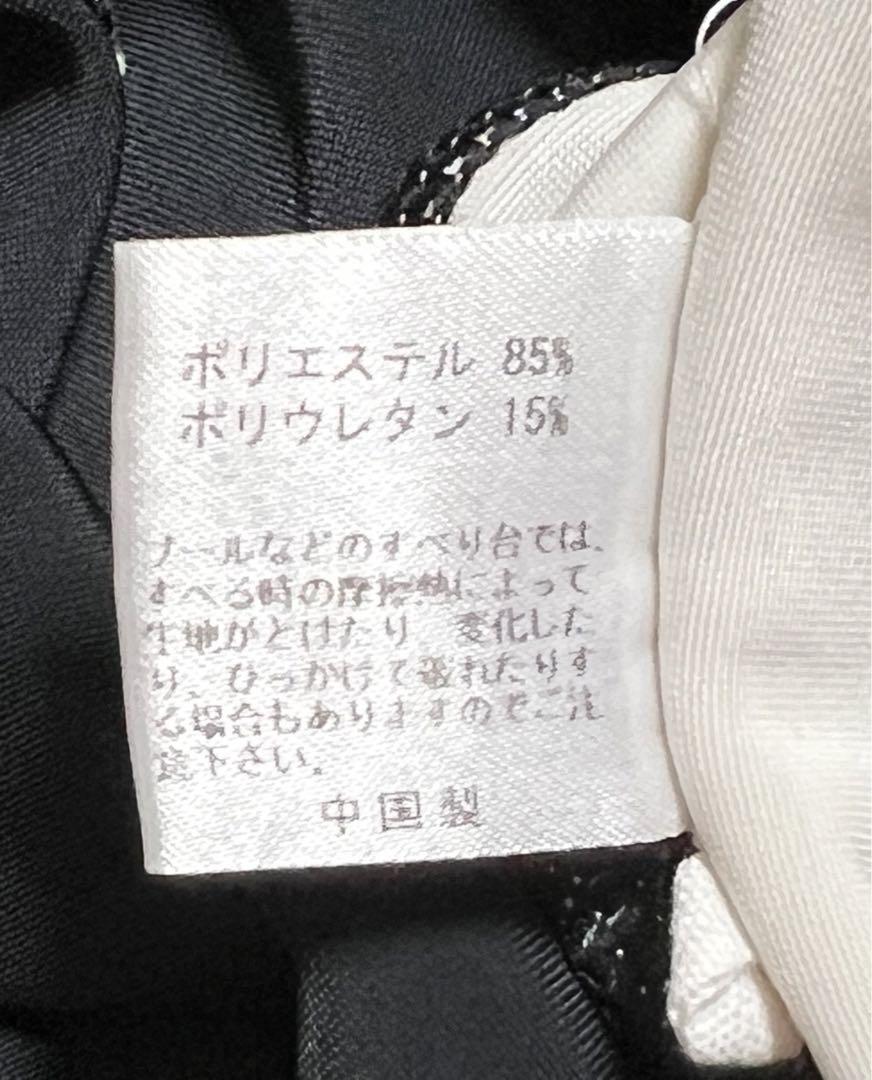 ポリエステル 85%
ポリウレタン 15%
プールなどのすべり台では、
すべる時の摩擦熱によって
生地がとけたり 変化した
り、ひっかけて破れたりす
る場合もありますのでご注
意下さい。
中国製